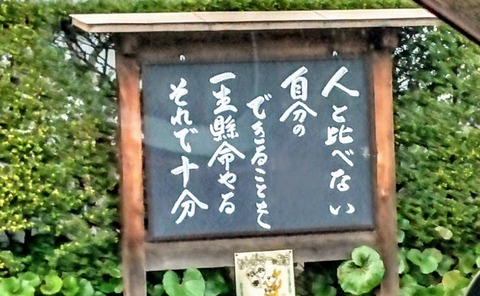 人と比べない
自分の
できることを
一生懸命やる
それで十分